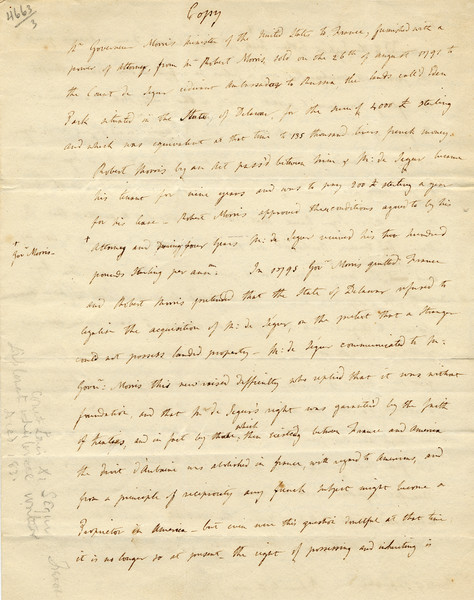 4663
3
Copy
Mr Governeur Morris minister of the United States to France, furnished with a
power of Attorney, from Mr Robert Morris, sold on the 26th of august 1791 to
the Count de Segur Ambassador to Russia the lands call'd Eden
Park situated in the State, of Delawar, for the sum of 4000 £ sterling
and which was equivalent at that time to 135 thousand livres french money
Robert Morris by an act pass'd between him & Mr. de Segur became
his tenant for nine years and was to pay 200 £ sterling a year
for his lease - Robert Morris approved the conditions agreed to by his
+ Govr Morris.
+ Attorney and during four years Mr. de Segur received his two hundred
pounds sterling per annm. In 1795 Govr Morris quitted France
and Robert Morris pretended that the State of Delawar refused to
legalise the acquisition of Mr. de Segur, on the pretext that a Stranger
could not possess landed property - Mr. de Segur communicated to Mr.
Govr. Morris this new raised difficulty who replied that it was without
foundation, and that Mr. de Segur's right was garantied by the faith
of treaties, and in fact by which then existing between France and America
the droit d'Aubaine was abolished in france, with regard to Americans, and
from a principle of reciprocity any french subject might become a
Proprietor in America - but even were this question doubtful at that time
it is no longer so at present - the right of possessing and inheriting is